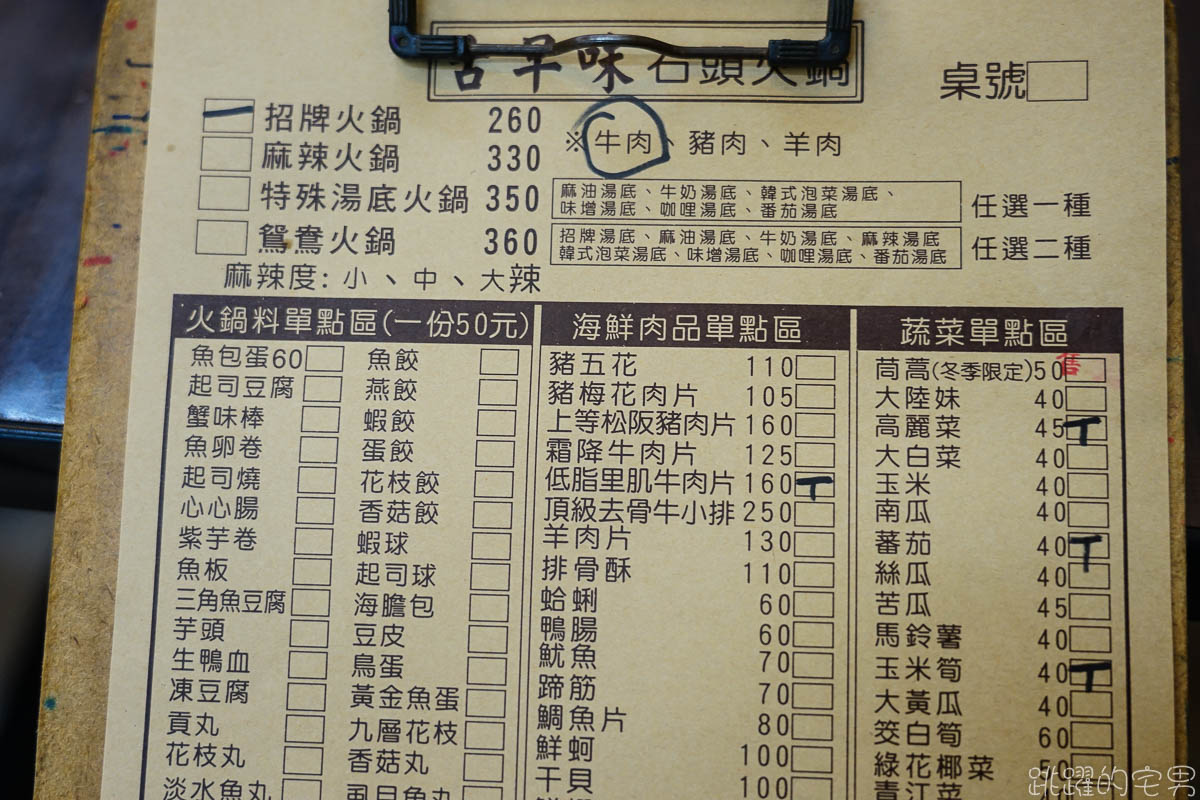 古早味石頭火鍋
桌號
招牌火鍋 260 ※牛肉、豬肉、羊肉
麻辣火鍋 330
特殊湯底火鍋 350 麻油湯底、牛奶湯底、韓式泡菜湯底、
味增湯底、咖哩湯底、番茄湯底 任選一種
鴛鴦火鍋 360 招牌湯底、麻油湯底、牛奶湯底、麻辣湯底
韓式泡菜湯底、味增湯底、咖哩湯底、番茄湯底 任選二種
麻辣度: 小、中、大辣
火鍋料單點區(一份50元)
魚包蛋60 魚餃
起司豆腐 燕餃
蟹味棒 蝦餃
魚卵卷 蛋餃
起司燒 花枝餃
心心腸 香菇餃
紫芋卷 蝦球
魚板 起司球
三角魚豆腐 海膽包
芋頭 豆皮
生鴨血 鳥蛋
凍豆腐 黃金魚蛋
貢丸 九層花枝
花枝丸 香菇丸
淡水魚丸 虱目魚丸
海鮮肉品單點區
豬五花 110
豬梅花肉片 105
上等松阪豬肉片 160
霜降牛肉片 125
低脂里肌牛肉片 160
頂級去骨牛小排 250
羊肉片 130
排骨酥 110
蛤蜊 60
鴨腸 60
魷魚 70
蹄筋 70
鯛魚片 80
鮮蚵 100
干貝 100
蔬菜單點區
茼蒿(冬季限定)50 售
大陸妹 40
高麗菜 45
大白菜 40
玉米 40
南瓜 40
蕃茄 40
絲瓜 40
苦瓜 45
馬鈴薯 40
玉米筍 40
大黃瓜 40
筊白筍 60
綠花椰菜 50
青江菜
跳躍的宅男